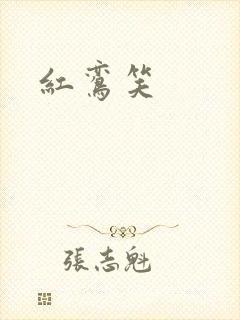 紅鸞笑
張志魁